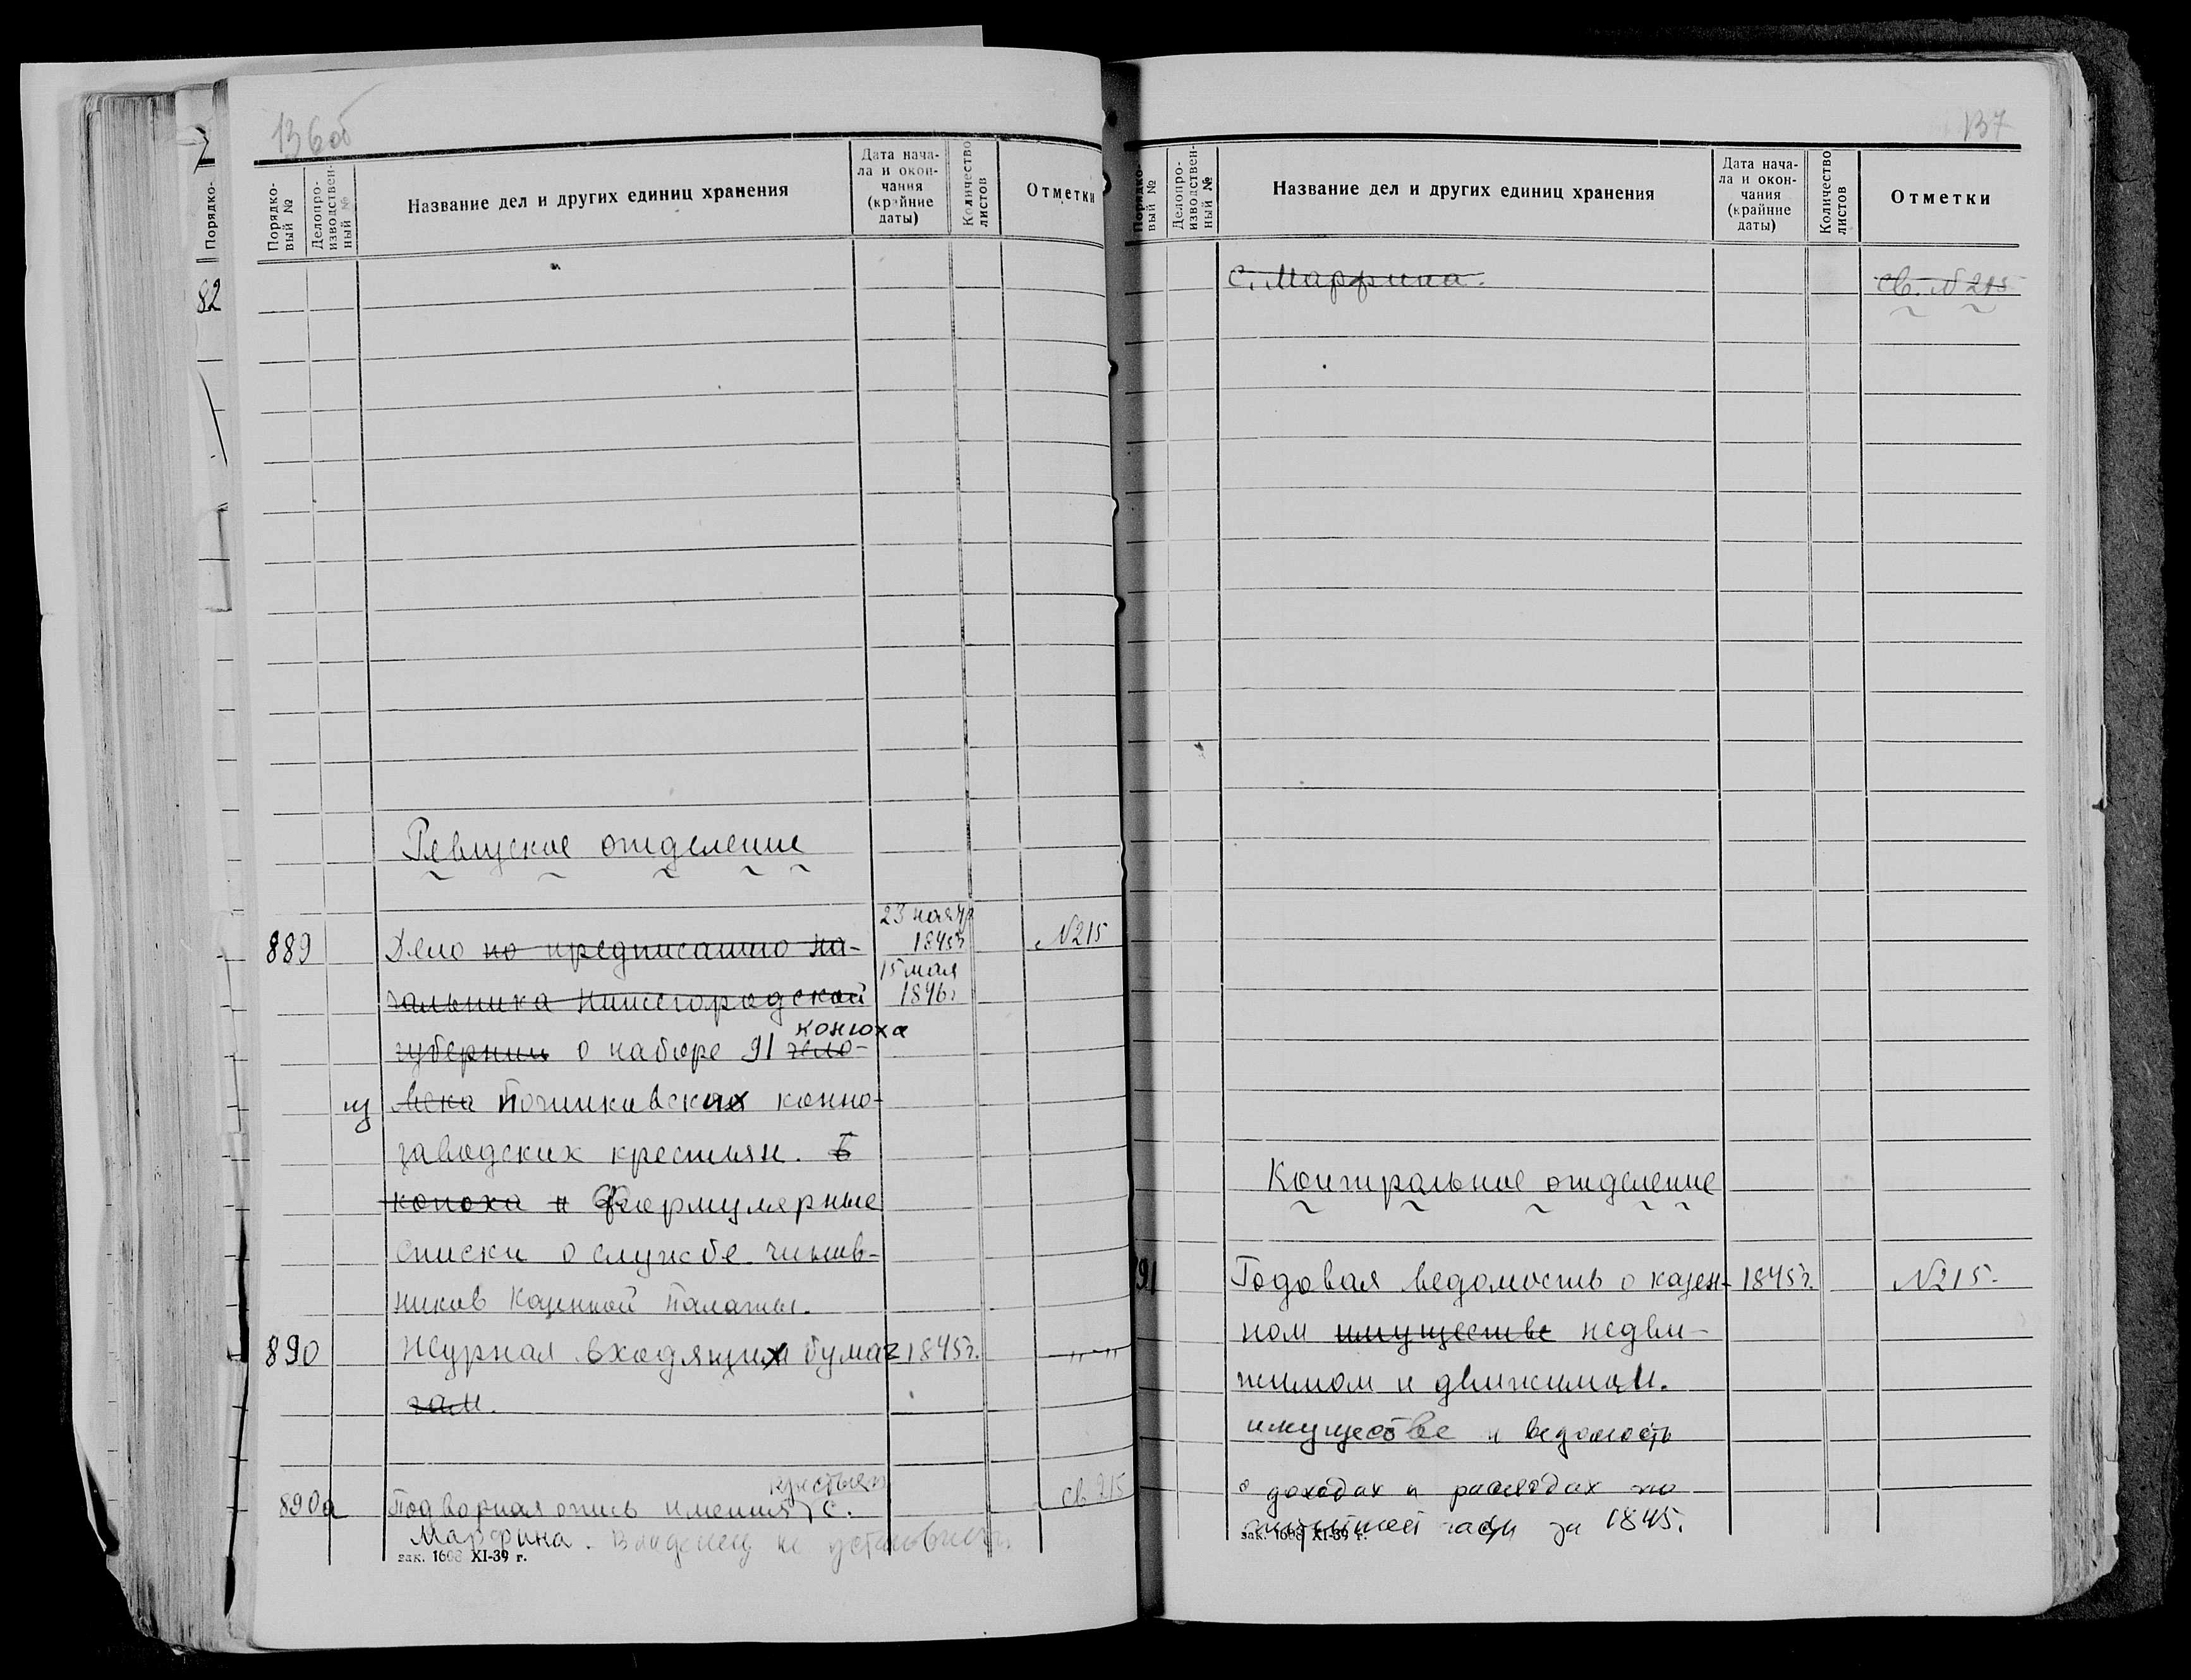 136об
Порядко-
82
Порядко-
вый №
Делопро-
изводствен-
ный №
Название дел и других единиц хранения
Дата нача-
ла и окон-
чания
(крайние
даты)
Количество
листов
Отметки
Ревизское отделение
889 Дело по предписанию на- 23 ноября 1845г. №215
чальника Нижегородской 15 мая 1846г.
конюха
губернии о наборе 91 чело-
из века Починковских конно-
заводских крестьян. В
конюха и Формулярные
списки о службе чинов-
ников Казенной палаты.
890 Журнал входящих бумаг 1845г. „-„
гам.
крестьян
890а Подворная опись имения с. св 215
Марфина. Владелец не установлен.
зак. 1608 XI-39 г.
137
Порядко-
вый №
Делопро-
изводствен-
ный №
Название дел и других единиц хранения
Дата нача-
ла и окон-
чания
(крайние
даты)
Количество
листов
Отметки
с. Марфина. Св. №215
Контрольное отделение
91 Годовая ведомость о казен- 1845г. №215.
ном имуществе недви-
жимом и движимом.
имуществе и ведомость
о доходах и расходах по
части за 1845.
зак. 1608 XI-39 г.